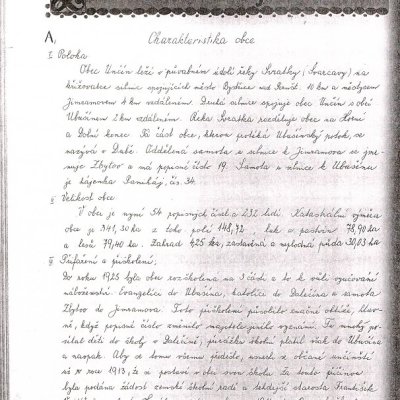 A, Charakteristika obce
I. Poloha
Obec Unčín leží v půvabném údolí řeky Svratky (Švarcavy) na
křižovatce silnic spojujících město Bystřice nad Pernšt. 10 km a městysem
Jimramovem 4 km vzdáleném. Druhá silnice spojuje obec Unčín s obcí
Ubušínem 2 km vzdáleném. Řeka Svratka rozděluje obec na Horní
a Dolní konec. Tu část obce, kterou protéká Ubušínský potok, se
nazývá v Dulí. Oddělená samota u silnice k Jimramovu se jme-
nuje Zbytov a má popisné číslo 19. Samota u silnice k Ubušínu
je hájenka čís. 34.
II Velikost obce
V obci je nyní 54 popisných čísel a 232 lidí. Katastrální výměra
obce je 341,30 ha z toho polí 148,72, luk a pastvin 78,90 ha
a lesů 79,40 ha. Zahrad 4,25 ha, zastavěná a neplodná půda 30,03 ha
Přifaření a přiškolení.
Do roku 1925 byla obec rozškolena na 3 části a to k vůli vyučování
náboženství. Evangelíci do Ubušína, katolíci do Dalečína a samota
Zbytov do Jimramova. Toto přiškolení působilo značné obtíže, hlav-
ně, když popisné číslo změnilo majitele jiného vyznání. Ten mnohdy
posílal děti do školy v Dalečíně, přirážku školní platil však do Ubušína
a naopak. Aby se tomu všemu předešlo, usnesli se občané unčínští
již v roce 1913, že si postaví v obci svou školu. Za touto příčinou
byla podána žádost zemské školní radě a tehdejší starosta František